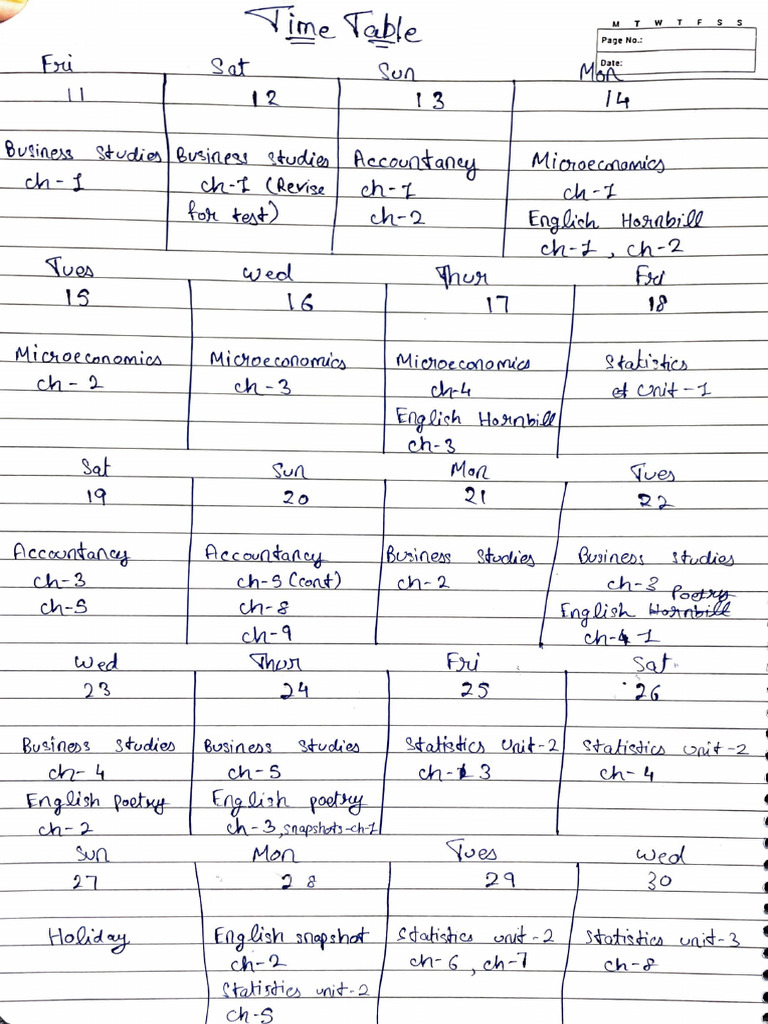 Time Table
M T W T F S S
Page No.:
Date:
Fri Sat Sun Mon
11 12 13 14
Business Studies Business studies Accountancy Microeconomics
ch-1 ch-1 (Revise ch-1 ch-1
for test) ch-2 English Hornbill
ch-1, ch-2
Tues Wed Thur Fri
15 16 17 18
Microeconomics Microeconomics Microeconomics Statistics
ch-2 ch-3 ch-4 Unit-1
English Hornbill
ch-3
Sat Sun Mon Tues
19 20 21 22
Accountancy Accountancy Business Studies Business studies
ch-3 ch-5 (cont) ch-2 ch-3
ch-5 ch-8 English Hornbill Poetry
ch-9 ch-4 1
Wed Thur Fri Sat
23 24 25 26
Business Studies Business Studies Statistics Unit-2 Statistics unit-2
ch-4 ch-5 ch-3 ch-4
English poetry English poetry
ch-2 ch-3, snapshots-ch-1
Sun Mon Tues Wed
27 28 29 30
Holiday English snapshot Statistics unit-2 Statistics unit-3
ch-2 ch-6, ch-7 ch-8
Statistics unit-2
ch-5